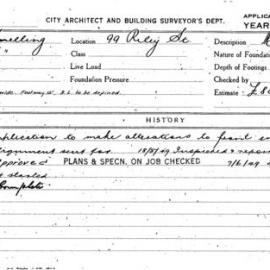 CITY ARCHITECT AND BUILDING SURVEYOR'S DEPT.
APPLIC
YEAR
welling Location 99 Riley St Description
" Class Nature of Foundation
Live Load Depth of Footings
Foundation Pressure Checked by
Footway B.L. to be defined. Estimate £
HISTORY
pplication to make alterations to front
lignment sent for 18/5/49 Inspected & repor
pproved PLANS & SPECN. ON JOB CHECKED 7/6/49
t started
Complete